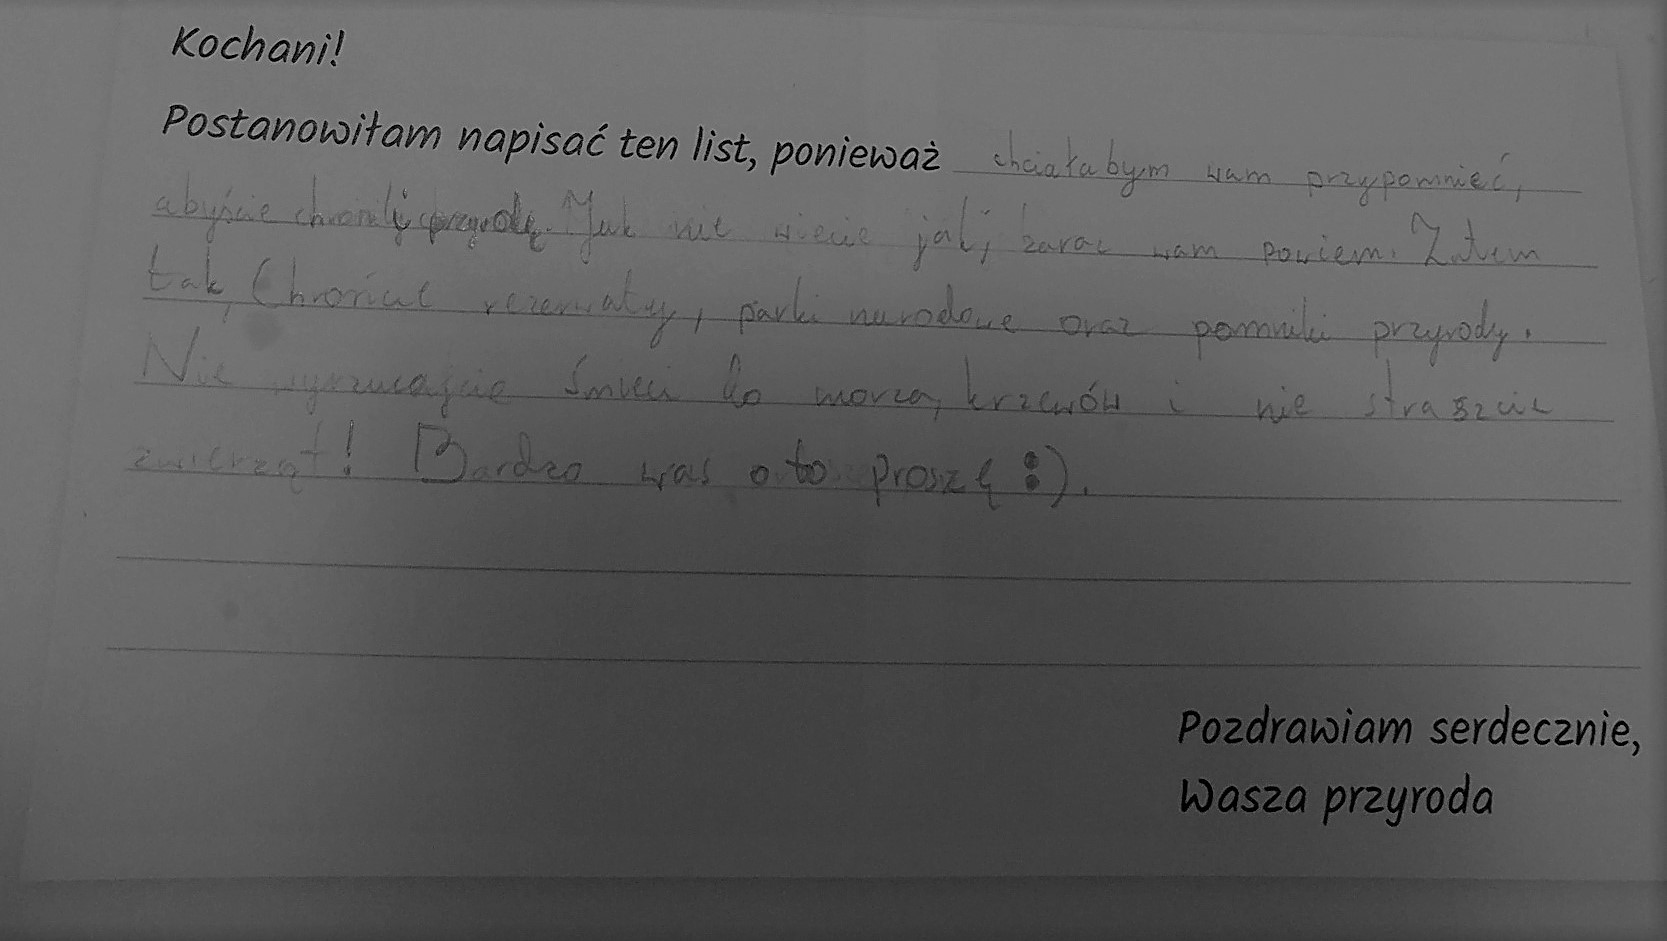 Kochani!
Postanowiłam napisać ten list, ponieważ chciałabym wam przypomnieć,
abyście chronili przyrodę. Jak nie wiecie jak, zaraz wam powiem. Zatem
tak, Chrońcie rezerwaty, parki narodowe oraz pomniki przyrody.
Nie wyrzucajcie śmieci do morza, krzewów i nie straszcie
zwierząt! Bardzo was o to proszę :).
Pozdrawiam serdecznie,
Wasza przyroda